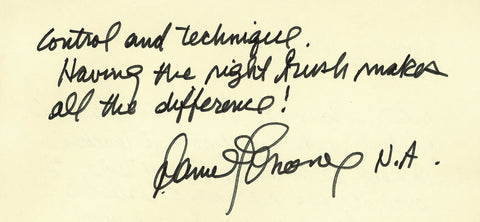 control and technique.
Having the right brush makes
all the difference!
Daniel Greene N.A.